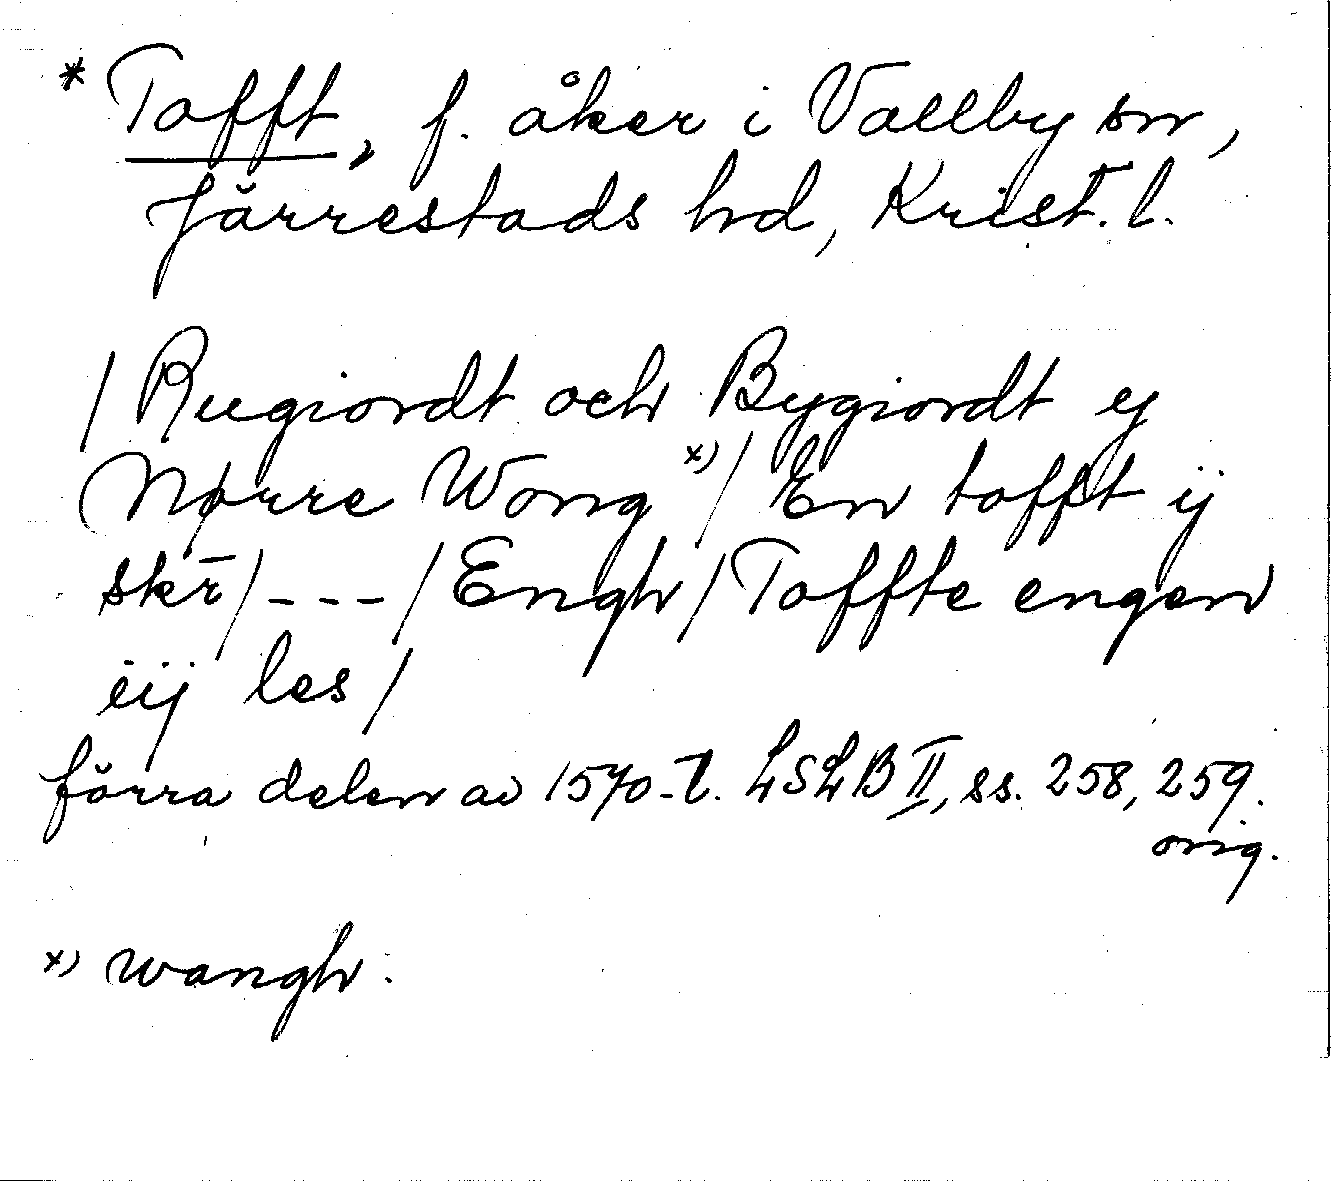 * Tofft, f. åker i Vallby sn,
Järrestads hd, Krist. l.
/ Rugiordt och Bygiordt ej
Nørre Wong x) / En tofft ij
skr̄ / --- / Engh / Toffte engen
iij les /
förra delen av 1570-t. LSLB II, ss. 258, 259.
orig.
x) wangh.